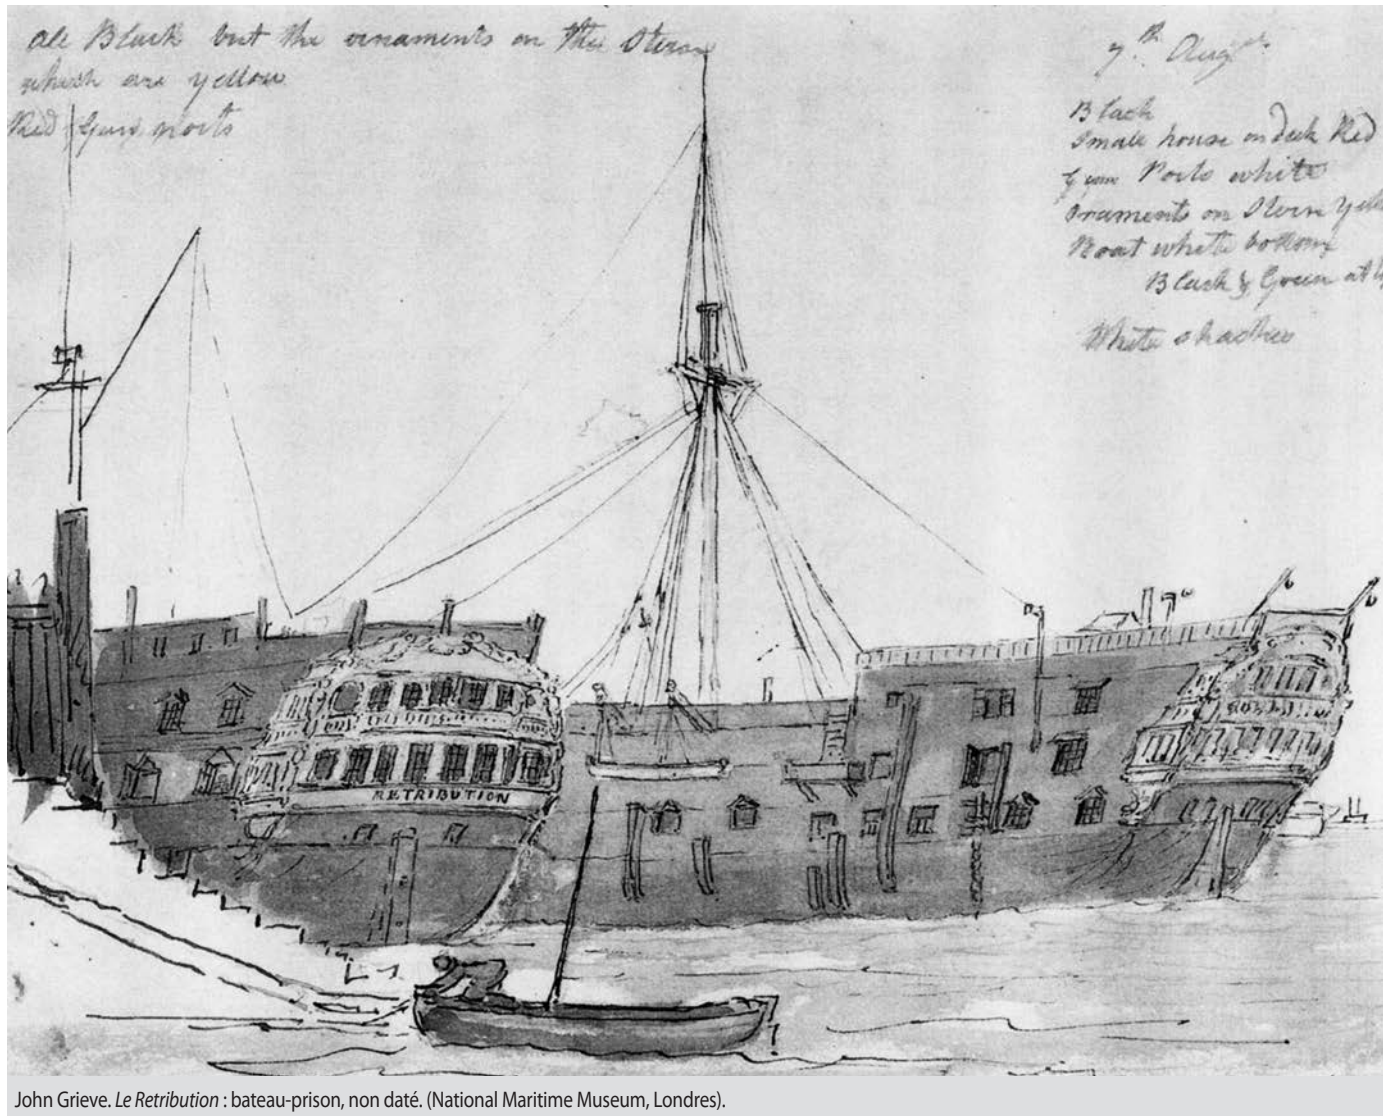 All Black but the ornaments on the Stern
which are yellow
Red Gun ports
7th Augst
Black
Small house on deck Red
Gun Ports white
Ornaments on Stern Yell
Boat white bottom
Black & Green at
White shades
RETRIBUTION
John Grieve. Le Retribution : bateau-prison, non daté. (National Maritime Museum, Londres).